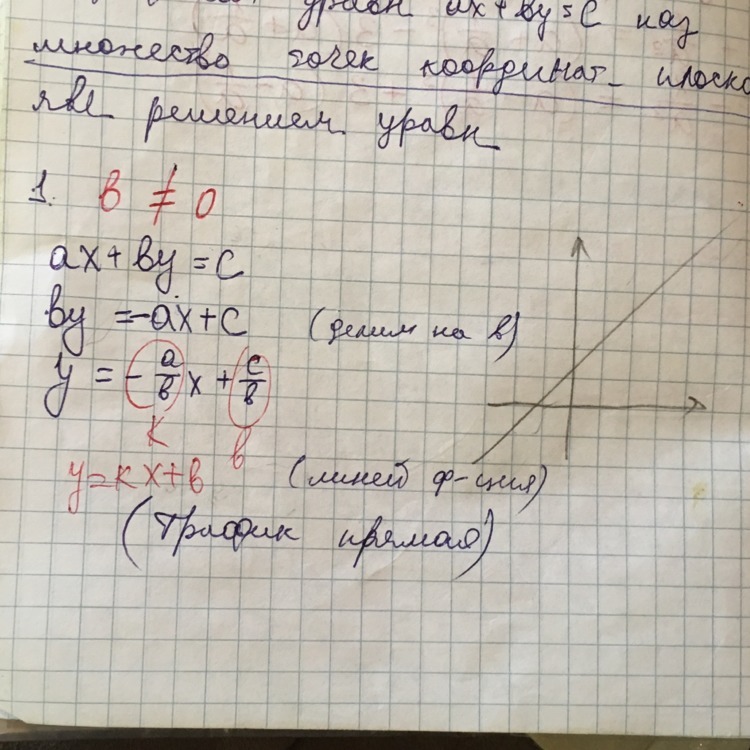 уравн ax + by = c наз
множество точек координат. плоско
явл решением уравн
1. b ≠ 0
ax + by = c
by = -ax + c (делим на b)
y = -a/b x + c/b
k b
y = kx + b (линей ф-ция)
(График прямая)